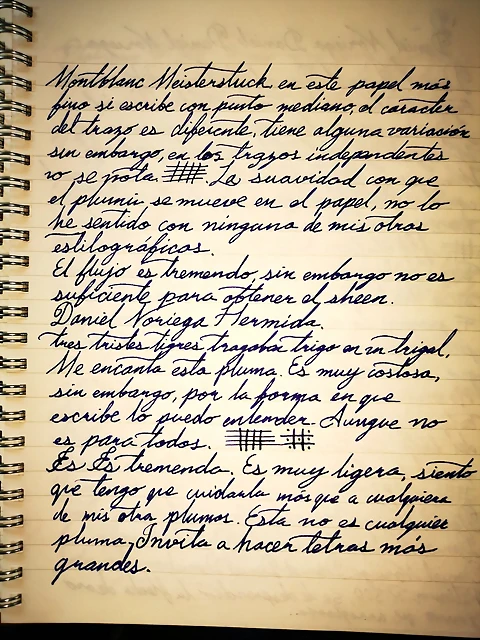 Montblanc Meisterstuck en este papel más
fino si escribe con punto mediano, el carácter
del trazo es diferente, tiene alguna variación
sin embargo, en los trazos independentes
no se nota. La suavidad con que
el plumín se mueve en el papel, no lo
he sentido con ninguna de mis otras
estilográficas.
El flujo es tremendo, sin embargo no es
suficiente para obtener el sheen.
Daniel Noriega Hermida.
tres tristes tigres tragaban trigo en un trigal,
Me encanta esta pluma. Es muy costosa,
sin embargo, por la forma en que
escribe lo puedo entender. Aunque no
es para todos.
Es Es tremenda. Es muy ligera, siento
que tengo que cuidarla más que a cualquiera
de mis otra plumas. Esta no es cualquier
pluma, Invita a hacer letras más
grandes.